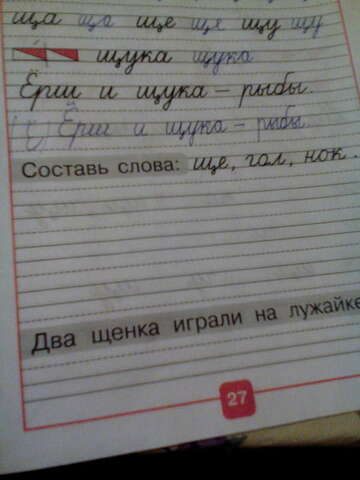 ща ща ще ще щу щу
щука щука
Ёрш и щука – рыбы.
Ёрш и щука – рыбы.
Составь слова: ще, гол, нок.
Два щенка играли на лужайке
27